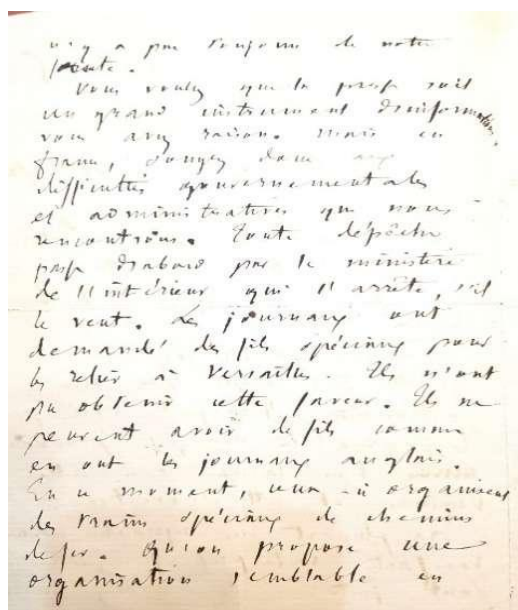 n'y a pas toujours de notre
faute.
Vous voulez que la presse soit
un grand instrument d'informations,
vous avez raison. Mais en
France, songez donc aux
difficultés gouvernementales
et administratives que nous
rencontrons. Toute dépêche
passe d'abord par le ministère
de l'intérieur qui l'arrête, s'il
le veut. Les journaux ont
demandé des fils spéciaux pour
les relier à Versailles. Ils n'ont
pu obtenir cette faveur. Ils ne
peuvent avoir de fils comme
en ont les journaux anglais.
En ce moment, ceux-ci organisent
des trains spéciaux de chemins
de fer. Qu'on propose une
organisation semblable en